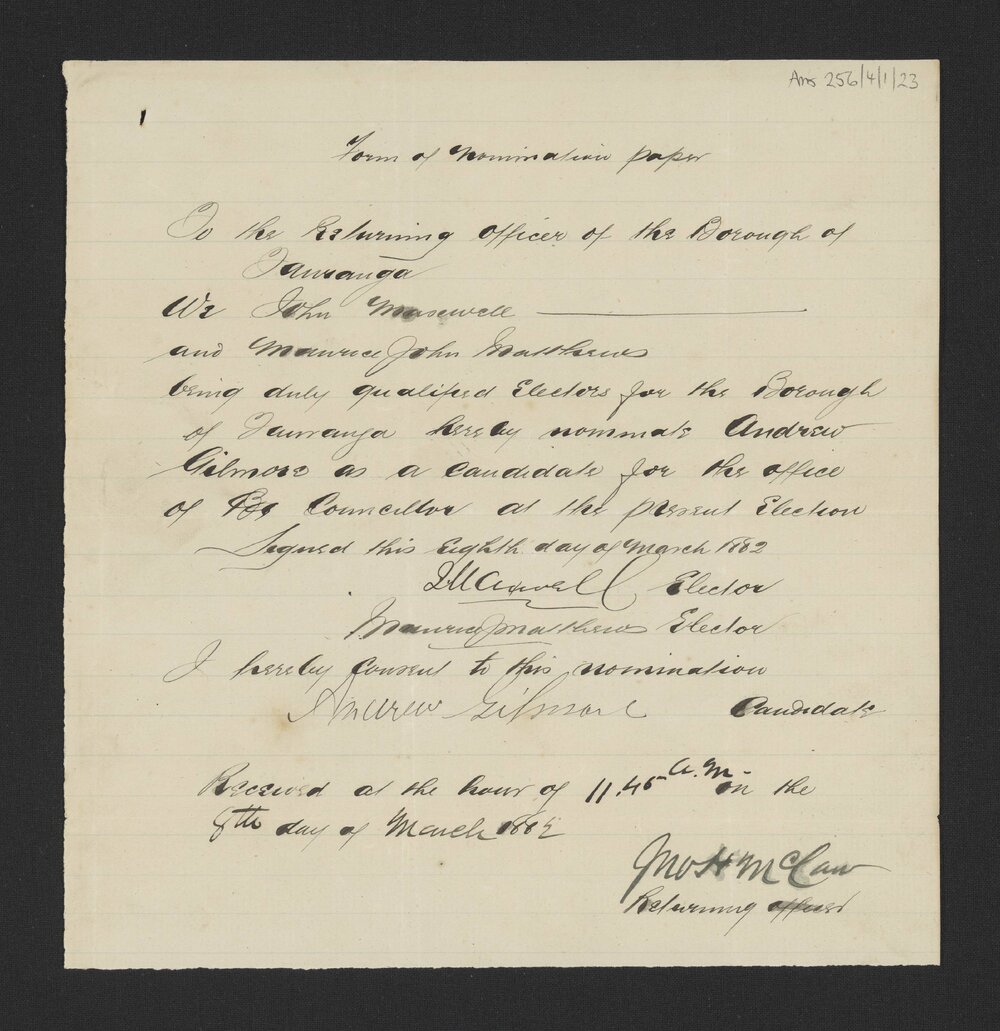 Ams 256/4/1/23
1
Form of Nomination paper
To the Returning Officer of the Borough of
Tauranga
We John Maxwell
and Maurice John Matthews
being duly qualified Electors for the Borough
of Tauranga hereby nominate Andrew
Gilmore as a Candidate for the office
of Councillor at the present Election
Signed this Eighth day of March 1882
J Maxwell Elector
Maurice J Matthews Elector
I hereby Consent to this nomination
Andrew Gilmore Candidate
Received at the hour of 11.45 a.m. on the
8th day of March 1882
Jno H McCaw
Returning officer